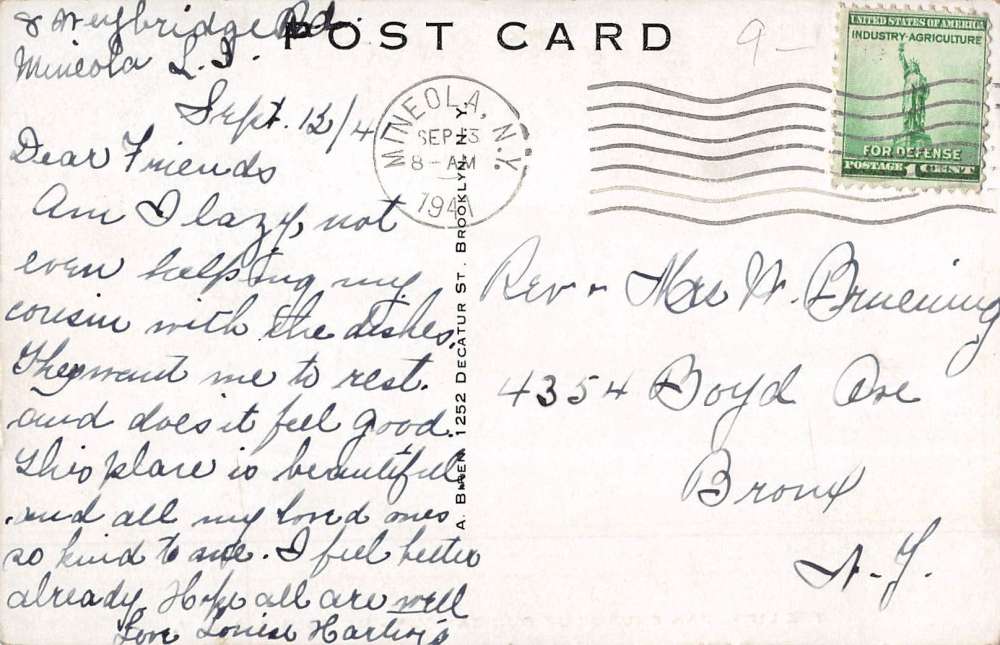 8 Weybridge Rd.
Mineola L.I.
Sept. 12/41
Dear Friends
Am I lazy, not
even helping my
cousin with the dishes.
They want me to rest.
and does it feel good.
This place is beautiful
and all my loved ones
so kind to me. I feel better
already. Hope all are well
Love Louise Hartwig
POST CARD
MINEOLA, N.Y.
SEP 13
8 - AM
1941
A. BREN, 1252 DECATUR ST. BROOKLYN, N.Y.
9-
UNITED STATES OF AMERICA
INDUSTRY-AGRICULTURE
FOR DEFENSE
POSTAGE 1 CENT
Rev + Mrs W. Bruening
4354 Boyd Ave
Bronx
N.Y.